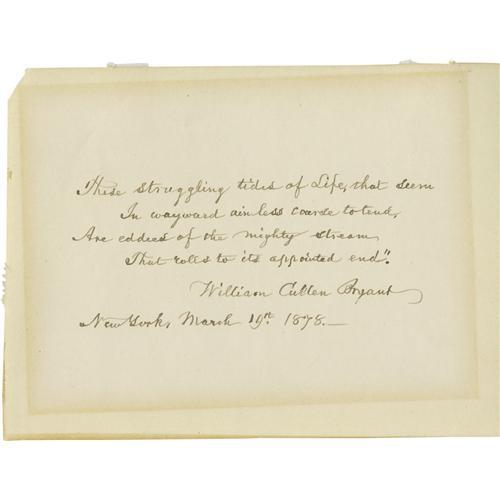 "These struggling tides of Life, that seem
In wayward aimless course to tend,
Are eddies of the mighty stream
That rolls to its appointed end".
William Cullen Bryant
New York, March 19th. 1878.—